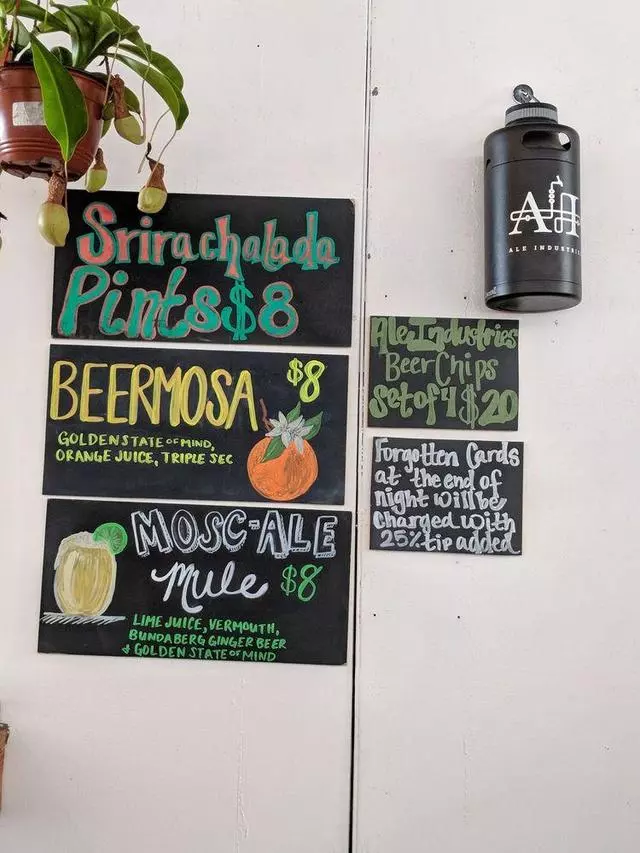 Srirachalada
Pints $8
BEERMOSA $8
GOLDEN STATE OF MIND,
ORANGE JUICE, TRIPLE SEC
MOSC-ALE
Mule $8
LIME JUICE, VERMOUTH,
BUNDABERG GINGER BEER
& GOLDEN STATE OF MIND
AI
ALE INDUSTRI
Ale Industries
Beer Chips
Set of 4 $20
Forgotten Cards
at the end of
night will be
charged with
25% tip added